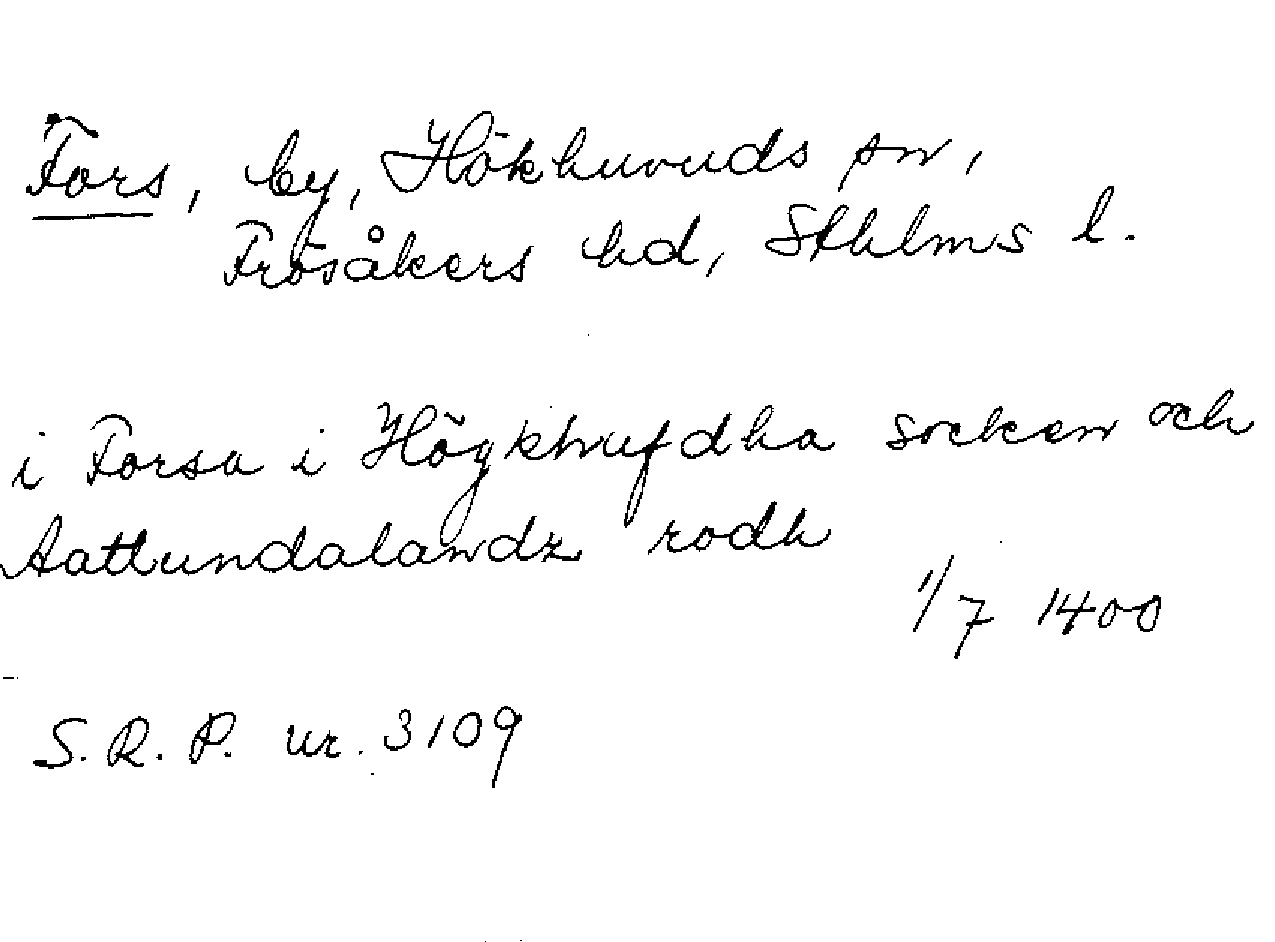 Fors, by, Hökhuvuds sn,
Frösåkers hd, Sthlms l.
i Forsa i Högkhufdha socken och
Aattundalandz rodh
1/7 1400
S.R.P. nr. 3109